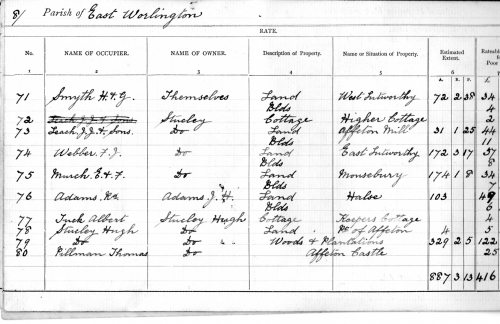 8/ Parish of East Worlington
RATE.
No. NAME OF OCCUPIER. NAME OF OWNER. Description of Property. Name or Situation of Property. Estimated Extent. Rateable for Poor
1 2 3 4 5 6
A. R. P. £
71 Smyth H. & G. Themselves Land West Lutworthy 72 2 38 34
Blds 4
72 Stucley Cottage Higher Cottage 2
73 Leach, J. J. & Sons. Do Land Affeton Mill 31 1 25 44
Blds 11
74 Webber F. J. Do Land East Lutworthy 172 3 17 57
Blds 8
75 Murch. E. & F. Do Land Monsebury 174 1 8 34
Blds 7
76 Adams. Adams. J. H. Land Halse 103
Blds 6
77 Tuck Albert Stucley Hugh Cottage Keepers Cottage 4
78 Stucley Hugh Do Land Pt of Affeton 4 5
79 Do Do Woods & Plantations 329 2 5 122
80 Pillman Thomas Do Affeton Castle 25
887 3 13 416